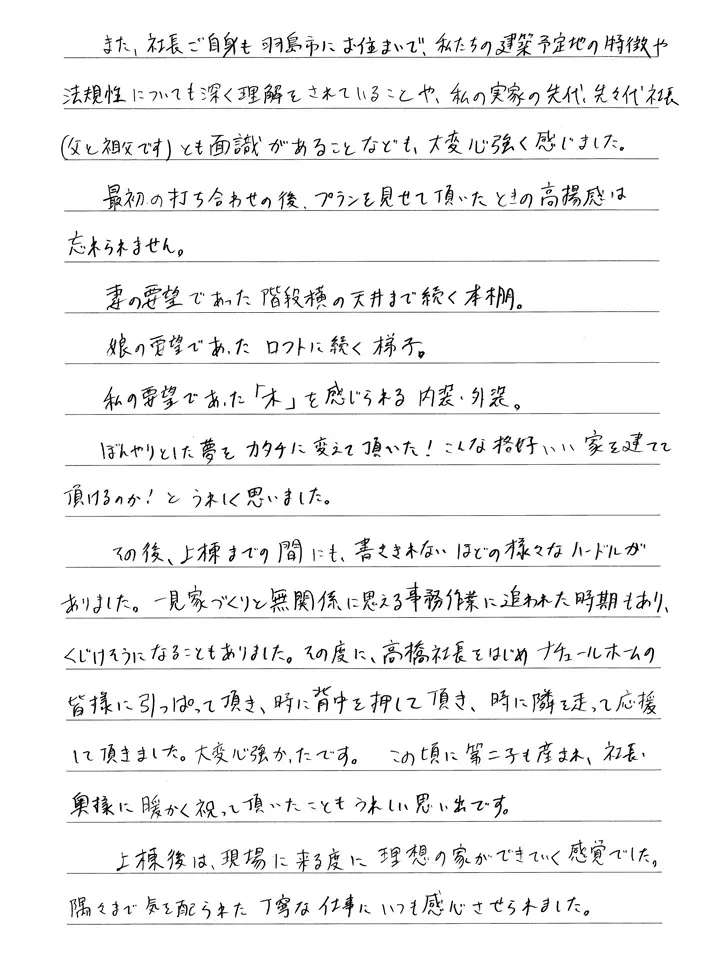 また、社長ご自身も羽島市にお住まいで、私たちの建築予定地の特徴や
法規性についても深く理解をされていることや、私の実家の先代、先々代社長
(父と祖父です)とも面識があることなども、大変心強く感じました。
最初の打ち合わせの後、プランを見せて頂いたときの高揚感は
忘れられません。
妻の要望であった階段横の天井まで続く本棚。
娘の要望であったロフトに続く梯子。
私の要望であった「木」を感じられる内装・外装。
ぼんやりとした夢をカタチに変えて頂いた!こんな格好いい家を建てて
頂けるのか!とうれしく思いました。
その後、上棟までの間にも、書ききれないほどの様々なハードルが
ありました。一見家づくりと無関係に思える事務作業に追われた時期もあり、
くじけそうになることもありました。その度に、高橋社長をはじめナチュールホームの
皆様に引っぱって頂き、時に背中を押して頂き、時に隣を走って応援
して頂きました。大変心強かったです。 この頃に第二子も産まれ、社長・
奥様に暖かく祝って頂いたこともうれしい思い出です。
上棟後は、現場に来る度に理想の家ができていく感覚でした。
隅々まで気を配られた丁寧な仕事にいつも感心させられました。